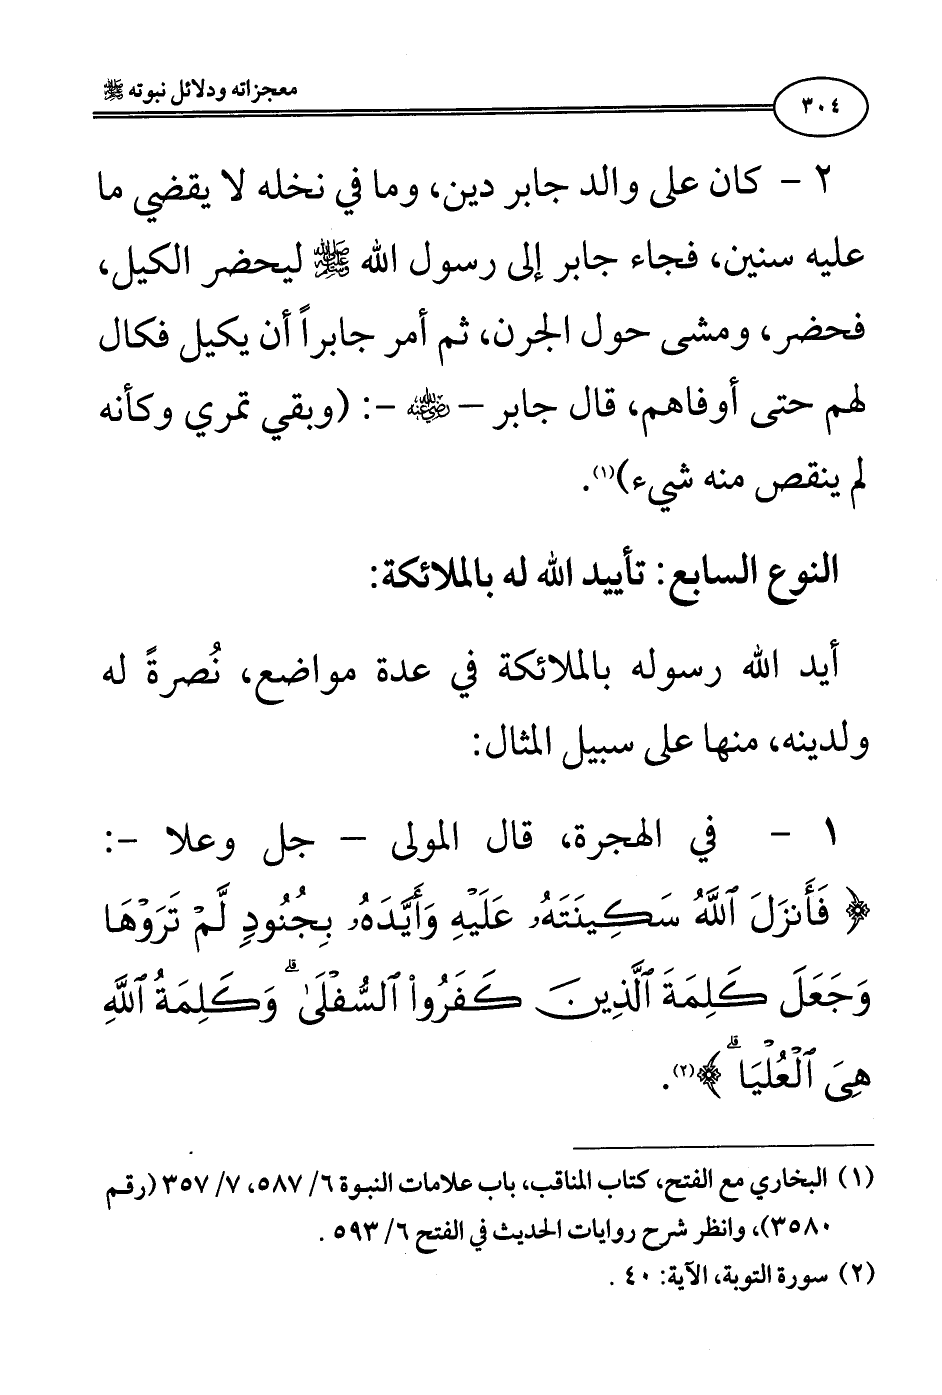 معجزاته ودلائل نبوته ﷺ
٣٠٤
٢ - كان على والد جابر دين، وما في نخله لا يقضي ما
عليه سنين، فجاء جابر إلى رسول الله ﷺ ليحضر الكيل،
فحضر، ومشى حول الجرن، ثم أمر جابراً أن يكيل فكال
لهم حتى أوفاهم، قال جابر - رضي الله عنه -: (وبقي تمري وكأنه
لم ينقص منه شيء)(١).
النوع السابع: تأييد الله له بالملائكة:
أيد الله رسوله بالملائكة في عدة مواضع، نُصرةً له
ولدينه، منها على سبيل المثال:
١ - في الهجرة، قال المولى - جل وعلا -:
﴿ فَأَنزَلَ ٱللَّهُ سَكِينَتَهُۥ عَلَيْهِ وَأَيَّدَهُۥ بِجُنُودٍ لَّمْ تَرَوْهَا
وَجَعَلَ كَلِمَةَ ٱلَّذِينَ كَفَرُوا۟ ٱلسُّفْلَىٰ ۗ وَكَلِمَةُ ٱللَّهِ
هِىَ ٱلْعُلْيَا ۗ ﴾(٢).
(١) البخاري مع الفتح، كتاب المناقب، باب علامات النبوة ٦/ ٥٨٧، ٧/ ٣٥٧ (رقم
٣٥٨٠)، وانظر شرح روايات الحديث في الفتح ٦/ ٥٩٣ .
(٢) سورة التوبة، الآية: ٤٠ .